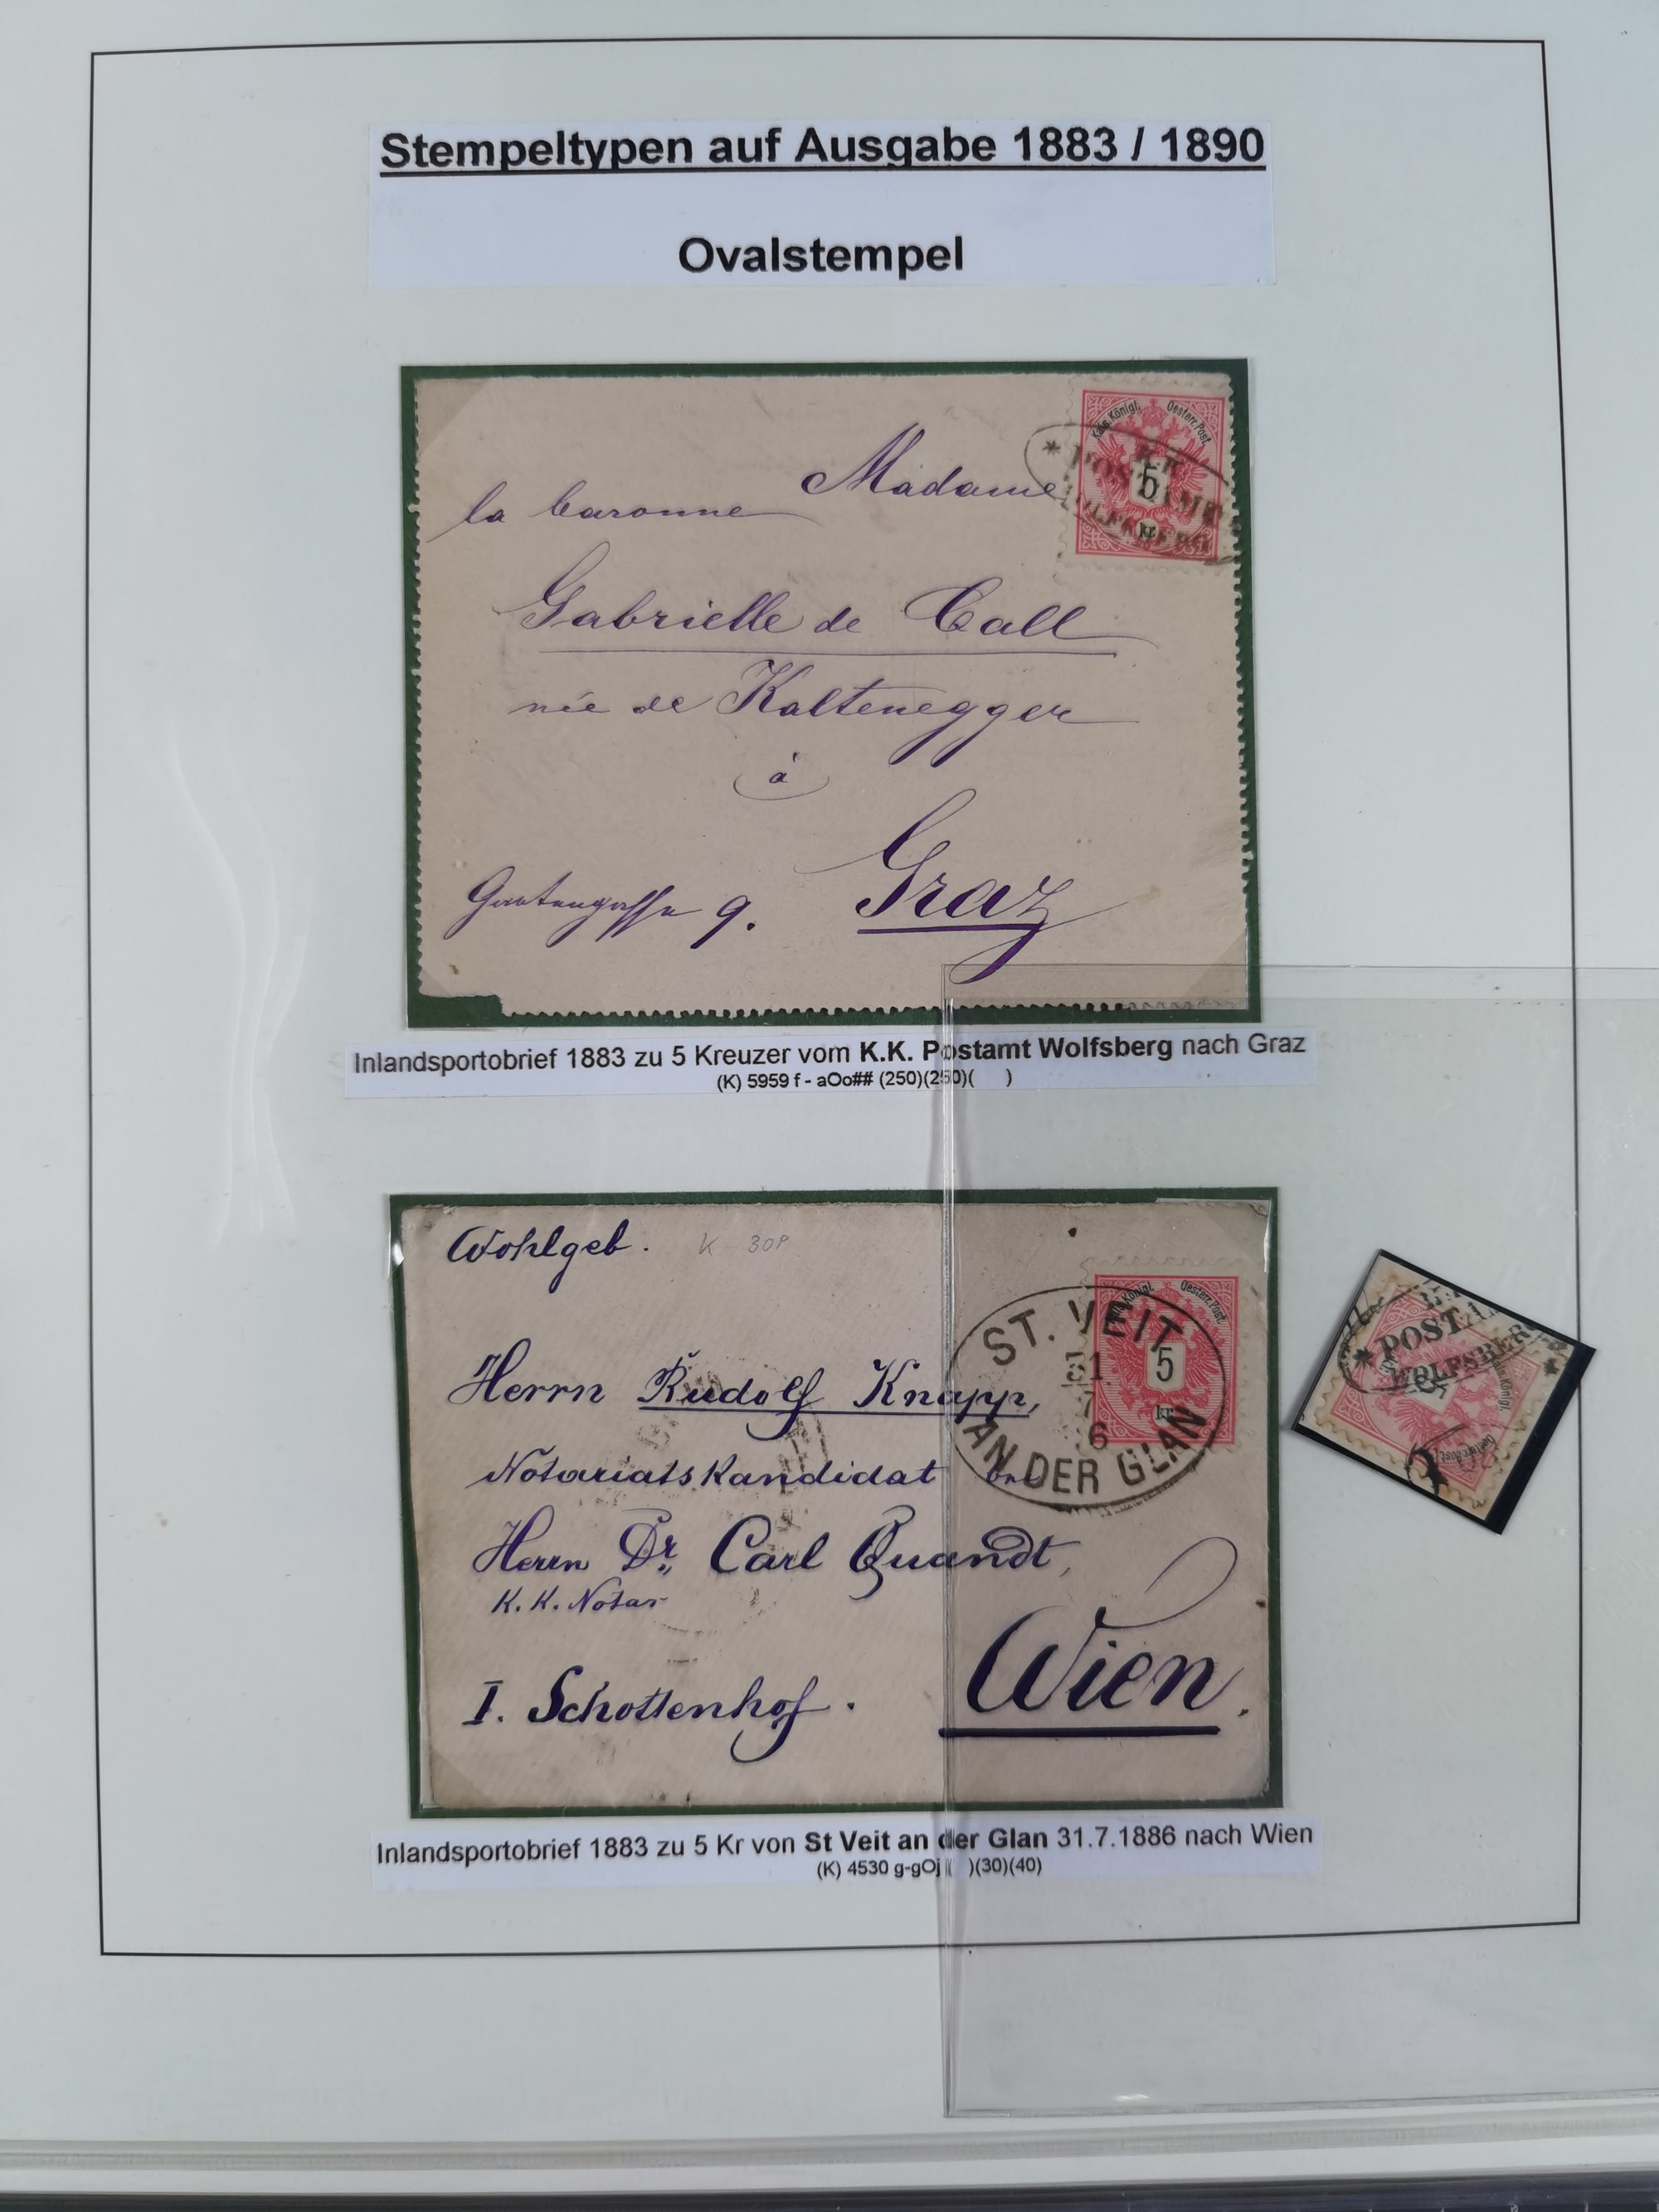 Stempeltypen auf Ausgabe 1883 / 1890
Ovalstempel
Kais. Königl. Oesterr. Post.
* K.K.
POSTAMT
WOLFSBERG
5
kr
Madame
la baronne
Gabrielle de Call
née de Kaltenegger
à
Graz
Gartengasse 9.
Inlandsportobrief 1883 zu 5 Kreuzer vom K.K. Postamt Wolfsberg nach Graz
(K) 5959 f - aOo## (250)(250)( )
Wohlgeb. K 30P
Kais. Königl. Oesterr. Post.
ST. VEIT
31. 5
7
kr
86
AN DER GLAN
Herrn Rudolf Knapp,
Notariatskandidat bei
Herrn Dr. Carl Quandt,
K. K. Notar
Wien.
I. Schottenhof.
Inlandsportobrief 1883 zu 5 Kr von St Veit an der Glan 31.7.1886 nach Wien
(K) 4530 g-gOj ( )(30)(40)
* POSTA
WOLFSBERG *
Kais. Königl.
Oesterr. Post.